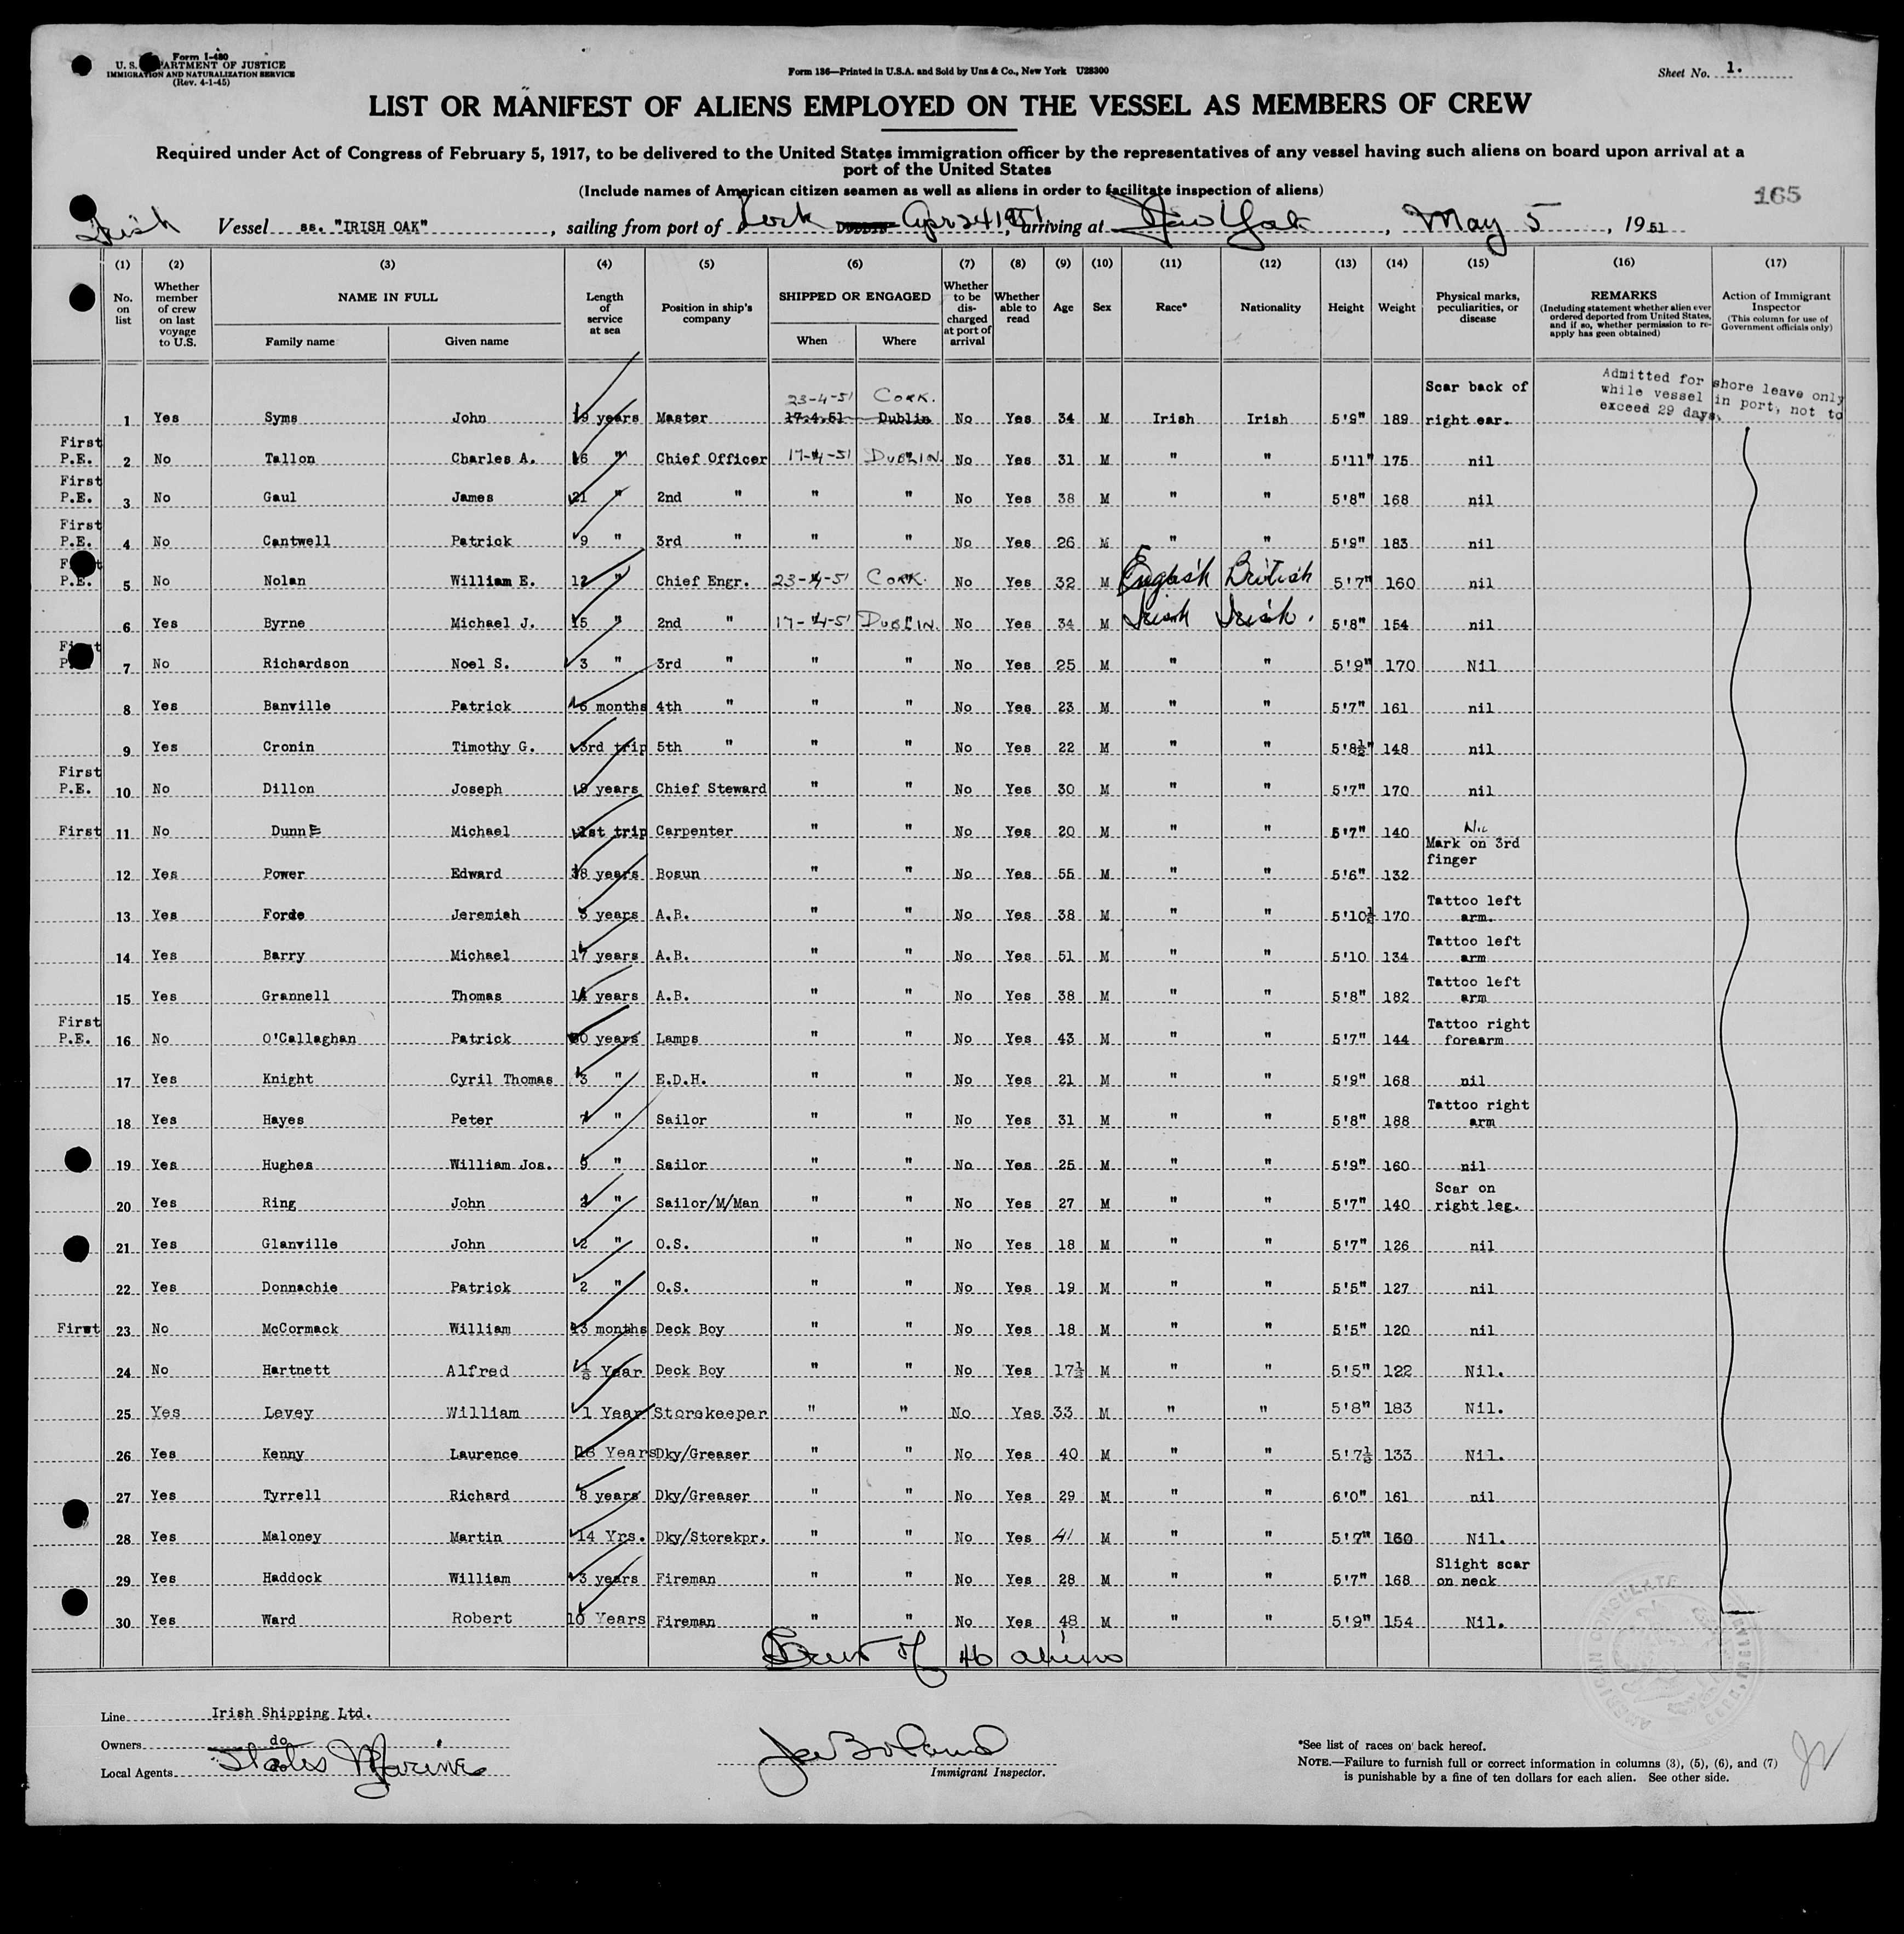 Form I-480
U. S. DEPARTMENT OF JUSTICE
IMMIGRATION AND NATURALIZATION SERVICE
(Rev. 4-1-45)
Form 136—Printed in U.S.A. and Sold by Unz & Co., New York U28300
Sheet No. 1.
LIST OR MANIFEST OF ALIENS EMPLOYED ON THE VESSEL AS MEMBERS OF CREW
Required under Act of Congress of February 5, 1917, to be delivered to the United States immigration officer by the representatives of any vessel having such aliens on board upon arrival at a
port of the United States
(Include names of American citizen seamen as well as aliens in order to facilitate inspection of aliens)
165
Irish Vessel ss. "IRISH OAK", sailing from port of Cork Dublin Apr 24 1951, arriving at New York, May 5, 1951
(1) (2) (3) (4) (5) (6) (7) (8) (9) (10) (11) (12) (13) (14) (15) (16) (17)
No. on list
Whether member of crew on last voyage to U.S.
NAME IN FULL
Family name Given name
Length of service at sea
Position in ship's company
SHIPPED OR ENGAGED
When Where
Whether to be discharged at port of arrival
Whether able to read
Age
Sex
Race*
Nationality
Height
Weight
Physical marks, peculiarities, or disease
REMARKS
(Including statement whether alien ever ordered deported from United States, and if so, whether permission to re-apply has geen obtained)
Action of Immigrant Inspector
(This column for use of Government officials only)
Admitted for shore leave only
while vessel in port, not to
exceed 29 days.
23-4-51 CORK.
1 Yes Syms John 19 years Master 17.4.51 Dublin No Yes 34 M Irish Irish 5'9" 189 Scar back of right ear.
First P.E. 2 No Tallon Charles A. 16 " Chief Officer 17-4-51 DUBLIN No Yes 31 M " " 5'11" 175 nil
First P.E. 3 No Gaul James 21 " 2nd " " " No Yes 38 M " " 5'8" 168 nil
First P.E. 4 No Cantwell Patrick 9 " 3rd " " " No Yes 26 M " " 5'9" 183 nil
First P.E. 5 No Nolan William E. 12 " Chief Engr. 23-4-51 CORK. No Yes 32 M English British 5'7" 160 nil
6 Yes Byrne Michael J. 15 " 2nd " 17-4-51 DUBLIN. No Yes 34 M Irish Irish. 5'8" 154 nil
First P.E. 7 No Richardson Noel S. 3 " 3rd " " " No Yes 25 M " " 5'9" 170 Nil
8 Yes Banville Patrick 16 months 4th " " " No Yes 23 M " " 5'7" 161 nil
9 Yes Cronin Timothy G. 3rd trip 5th " " " No Yes 22 M " " 5'8½" 148 nil
First P.E. 10 No Dillon Joseph 19 years Chief Steward " " No Yes 30 M " " 5'7" 170 nil
First 11 No DunnE Michael 1st trip Carpenter " " No Yes 20 M " " 5'7" 140 Nil
12 Yes Power Edward 38 years Bosun " " No Yes 55 M " " 5'6" 132 Mark on 3rd finger
13 Yes Forde Jeremiah 3 years A.B. " " No Yes 38 M " " 5'10½ 170 Tattoo left arm.
14 Yes Barry Michael 17 years A.B. " " No Yes 51 M " " 5'10 134 Tattoo left arm
15 Yes Grannell Thomas 14 years A.B. " " No Yes 38 M " " 5'8" 182 Tattoo left arm
First P.E. 16 No O'Callaghan Patrick years Lamps " " No Yes 43 M " " 5'7" 144 Tattoo right forearm
17 Yes Knight Cyril Thomas 3 " E.D.H. " " No Yes 21 M " " 5'9" 168 nil
18 Yes Hayes Peter 7 " Sailor " " No Yes 31 M " " 5'8" 188 Tattoo right arm
19 Yes Hughes William Jos. 9 " Sailor " " No Yes 25 M " " 5'9" 160 nil
20 Yes Ring John 2 " Sailor/M/Man " " No Yes 27 M " " 5'7" 140 Scar on right leg.
21 Yes Glanville John 2 " O.S. " " No Yes 18 M " " 5'7" 126 nil
22 Yes Donnachie Patrick 2 " O.S. " " No Yes 19 M " " 5'5" 127 nil
First 23 No McCormack William 13 months Deck Boy " " No Yes 18 M " " 5'5" 120 nil
24 No Hartnett Alfred ½ Year Deck Boy " " No Yes 17½ M " " 5'5" 122 Nil.
25 Yes Levey William 1 Year Storekeeper " " No Yes 33 M " " 5'8" 183 Nil.
26 Yes Kenny Laurence 16 Years Dky/Greaser " " No Yes 40 M " " 5'7½ 133 Nil.
27 Yes Tyrrell Richard 8 years Dky/Greaser " " No Yes 29 M " " 6'0" 161 nil
28 Yes Maloney Martin 14 Yrs. Dky/Storekpr. " " No Yes 41 M " " 5'7" 160 Nil.
29 Yes Haddock William 3 years Fireman " " No Yes 28 M " " 5'7" 168 Slight scar on neck
30 Yes Ward Robert 10 Years Fireman " " No Yes 48 M " " 5'9" 154 Nil.
Crew of 46 aliens
AMERICAN CONSULATE
Line Irish Shipping Ltd.
Owners do
Local Agents States Marine
Immigrant Inspector.
*See list of races on back hereof.
NOTE.—Failure to furnish full or correct information in columns (3), (5), (6), and (7)
is punishable by a fine of ten dollars for each alien. See other side.